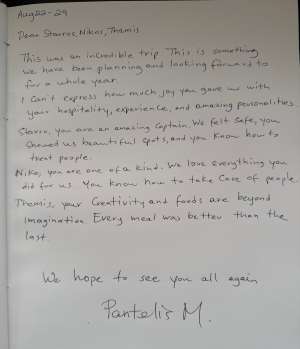 Aug 22-29
Dear Stavros, Nikos, Themis
This was an incredible trip. This is something
we have been planning and looking forward to
for a whole year.
I can't express how much joy you gave us with
your hospitality, experience, and amazing personalities.
Stavro, you are an amazing captain. We felt safe, you
showed us beautiful spots, and you know how to
treat people.
Niko, you are one of a kind. We love everything you
did for us. You know how to take care of people.
Themis, your creativity and foods are beyond
imagination Every meal was better than the
last.
We hope to see you all again
Pantelis M.